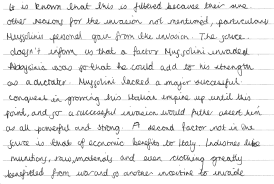 It is known that this is filtered because their are
other reasons for the invasion not mentioned, particulary
Mussolinis personal gain from the invasion. The source
doesn't inform us that a factor Mussolini invaded
Abyssinia was so that he could add to his strength
as a dictator. Mussolini lacked a major successful
conquest in growing his Italian empire up until this
point, and so a successful invasion would further assert him
as all powerful and strong. A second factor not in the
source is that of economic benefits to Italy. Industries like
munitions, raw materials and even clothing greatly
benefitted from war and so another incentive to invade